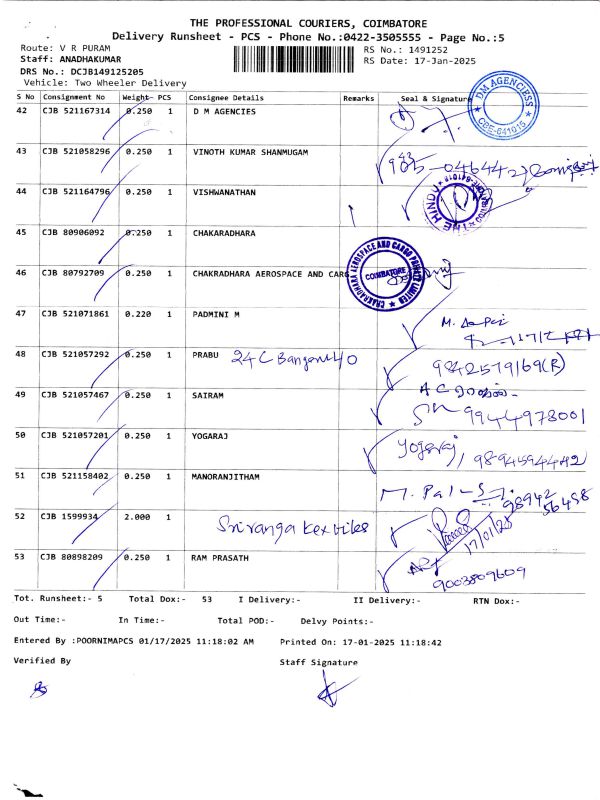 THE PROFESSIONAL COURIERS, COIMBATORE
Delivery Runsheet - PCS - Phone No.:0422-3505555 - Page No.:5
Route: V R PURAM RS No.: 1491252
Staff: ANADHAKUMAR RS Date: 17-Jan-2025
DRS No.: DCJB149125205
Vehicle: Two Wheeler Delivery
S No Consignment No Weight- PCS Consignee Details Remarks Seal & Signature
42 CJB 521167314 0.250 1 D M AGENCIES
DM AGENCIESS
CBE-641015
43 CJB 521058296 0.250 1 VINOTH KUMAR SHANMUGAM
44 CJB 521164796 0.250 1 VISHWANATHAN
THE HINDU
45 CJB 80906092 0.250 1 CHAKARADHARA
46 CJB 80792709 0.250 1 CHAKRADHARA AEROSPACE AND CARG
CHAKRADHARA AEROSPACE AND CARGO PRIVATE LIMITED
COIMBATORE
47 CJB 521071861 0.220 1 PADMINI M
48 CJB 521057292 0.250 1 PRABU
9842579169(R)
49 CJB 521057467 0.250 1 SAIRAM
9944978001
50 CJB 521057201 0.250 1 YOGARAJ
Yogaraj, 9894594442
51 CJB 521158402 0.250 1 MANORANJITHAM
98942
56458
52 CJB 1599934 2.000 1 Sriranga textiles
17/01/25
53 CJB 80898209 0.250 1 RAM PRASATH
9003809609
Tot. Runsheet:- 5 Total Dox:- 53 I Delivery:- II Delivery:- RTN Dox:-
Out Time:- In Time:- Total POD:- Delvy Points:-
Entered By :POORNIMAPCS 01/17/2025 11:18:02 AM Printed On: 17-01-2025 11:18:42
Verified By Staff Signature